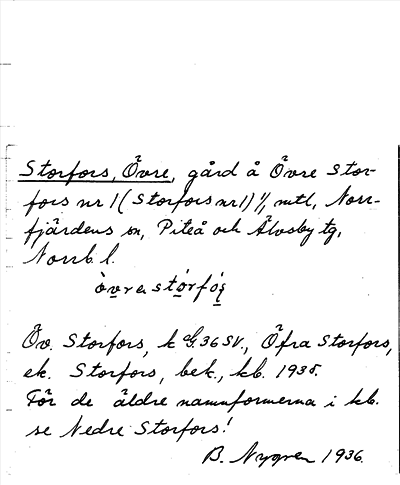 Storfors, Övre, gård å Övre Stor-
fors nr 1 (Storfors nr 1) 1/1 mtl, Norr-
fjärdens sn, Piteå och Älvsby tg,
Norrb. l.
Öv. Storfors, k 36 SV., Öfra Storfors,
ek. Storfors, bek., kb. 1935.
För de äldre namnformerna i kb.
se Nedre Storfors!
B. Nygren 1936.